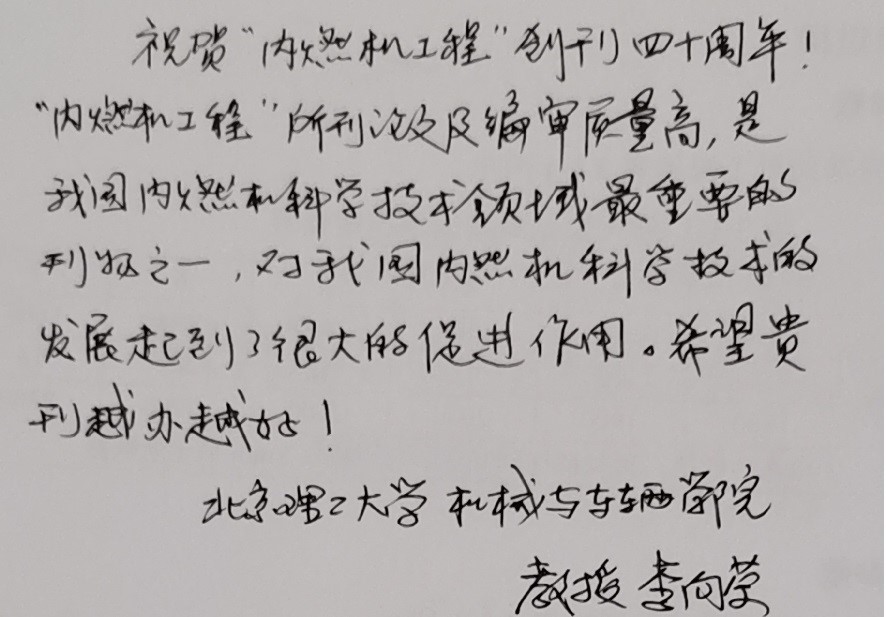 祝贺“内燃机工程”创刊四十周年！
“内燃机工程”所刊论文及编审质量高，是
我国内燃机科学技术领域最重要的
刊物之一，对我国内燃机科学技术的
发展起到了很大的促进作用。希望贵
刊越办越好！
北京理工大学机械与车辆学院
教授 李向荣